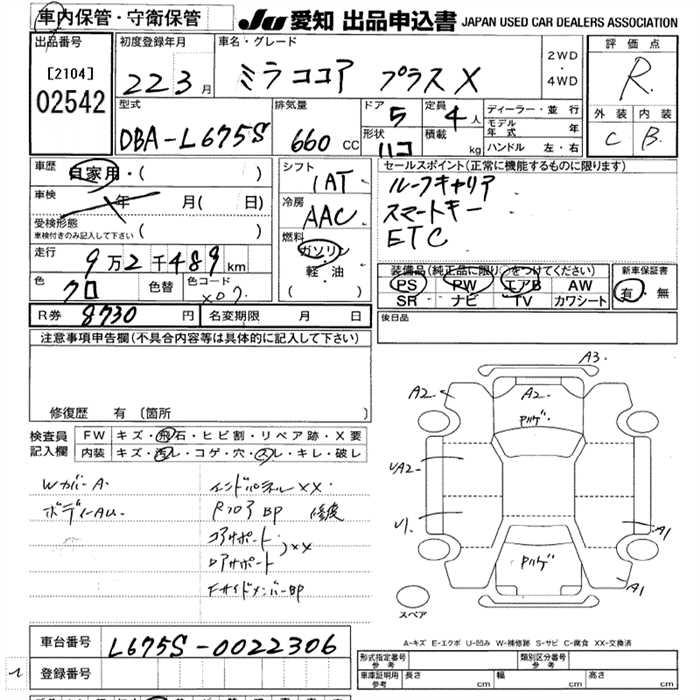 車内保管・守衛保管
JU 愛知 出品申込書 JAPAN USED CAR DEALERS ASSOCIATION
出品番号 初度登録年月 車名・グレード 評価点
[2104] 02542
22 3月 ミラココア プラスX 2WD・4WD R
型式 排気量 ドア 定員 ディーラー・並行 外装 内装
DBA-L675S 660 CC 5 4人 モデル年式 年 C B
形状 ハコ 積載 kg ハンドル 左・右
車歴 自家用・( ) シフト 1AT セールスポイント(正常に機能するものに限ります)
車検 年 月( 日) 冷房 AAC ルーフキャリア
受検形態 スマートキー
車検付きのみ記入して下さい ( ) 燃料 ETC
走行 9万2千489km ガソリン
軽・油
( )
色 クロ 色替 色コード X07
装備品(純正品に限り○をつけてください) 新車保証書
PS PW エアB AW 有・無
SR ナビ TV カワシート
R券 8730 円 名変期限 月 日 後日品
注意事項申告欄(不具合内容等は具体的に記入して下さい)
修復歴 有 (箇所 )
検査員記入欄 FW キズ・飛石・ヒビ割・リペア跡・X要
内装 キズ・汚レ・コゲ・穴・スレ・キレ・破レ
WカバーA
ボデーAU
インドパネルXX
RフロアBP
コアサポート
ロアサポート XX
FサイドメンバーBP
A3
A2
A2
UA2
U1
A1
A1
スペア
A-キズ E-エクボ U-凹み W-補修跡 S-サビ C-腐食 XX-交換済
車台番号 L675S-0022306
登録番号
形式指定番号 参考 類別区分番号 参考
車庫証明用 参考 長さ cm 幅 cm 高さ cm